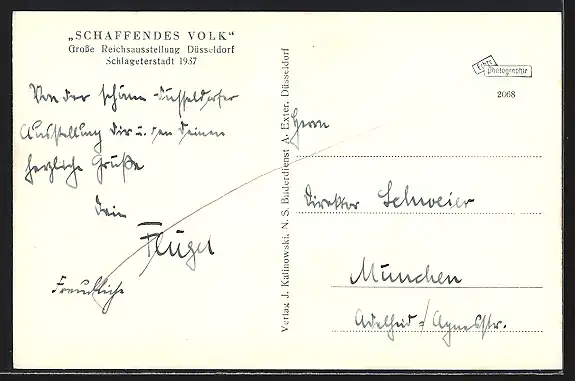 „SCHAFFENDES VOLK“
Große Reichsausstellung Düsseldorf
Schlageterstadt 1937
Von der schönen Düsseldorfer
Ausstellung Dir u. den Deinen
herzliche Grüße
Dein
Flügel
Freundliche
Verlag J. Kalinowski, N. S. Bilderdienst A. Exter, Düsseldorf
Echte
Photographie
2068
Herrn
Direktor Schweier
München
Adelheid-/Agnesstr.